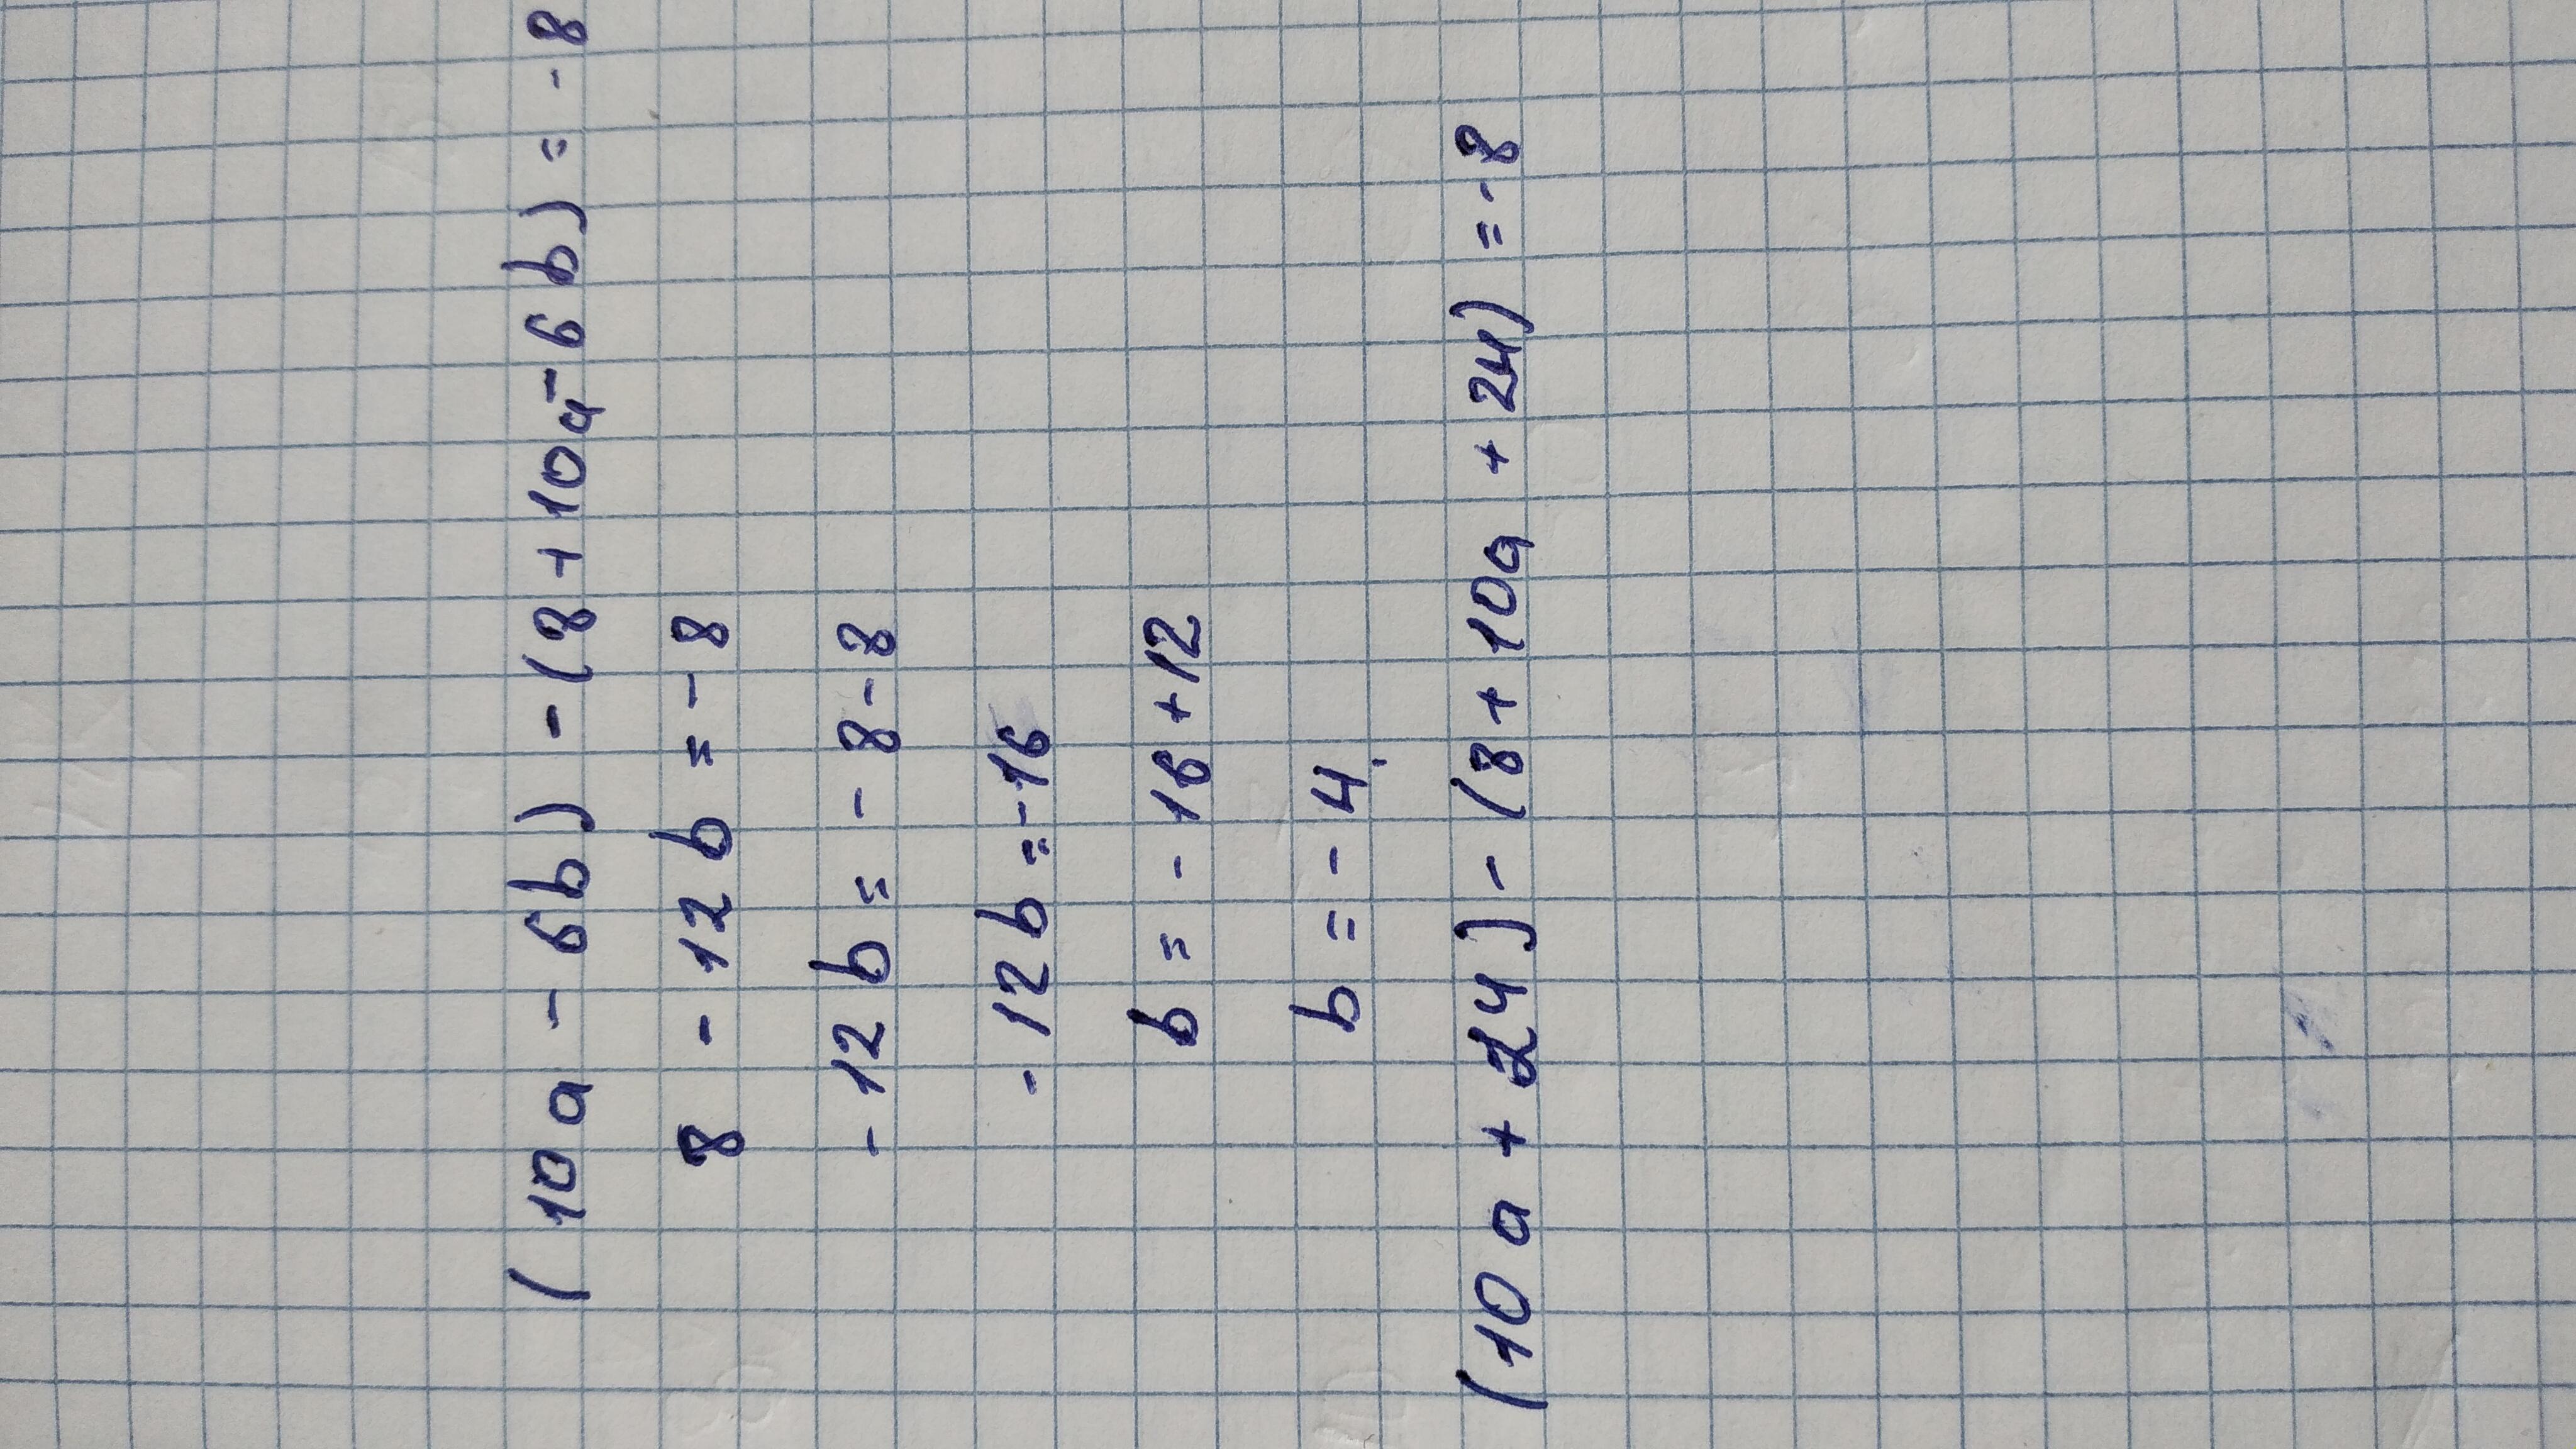 (10a - 6b) - (8 + 10a - 6b) = -8
8 - 12b = -8
-12b = -8-8
-12b = -16
b = -16+12
b = -4.
(10a + 24) - (8 + 10a + 24) = -8